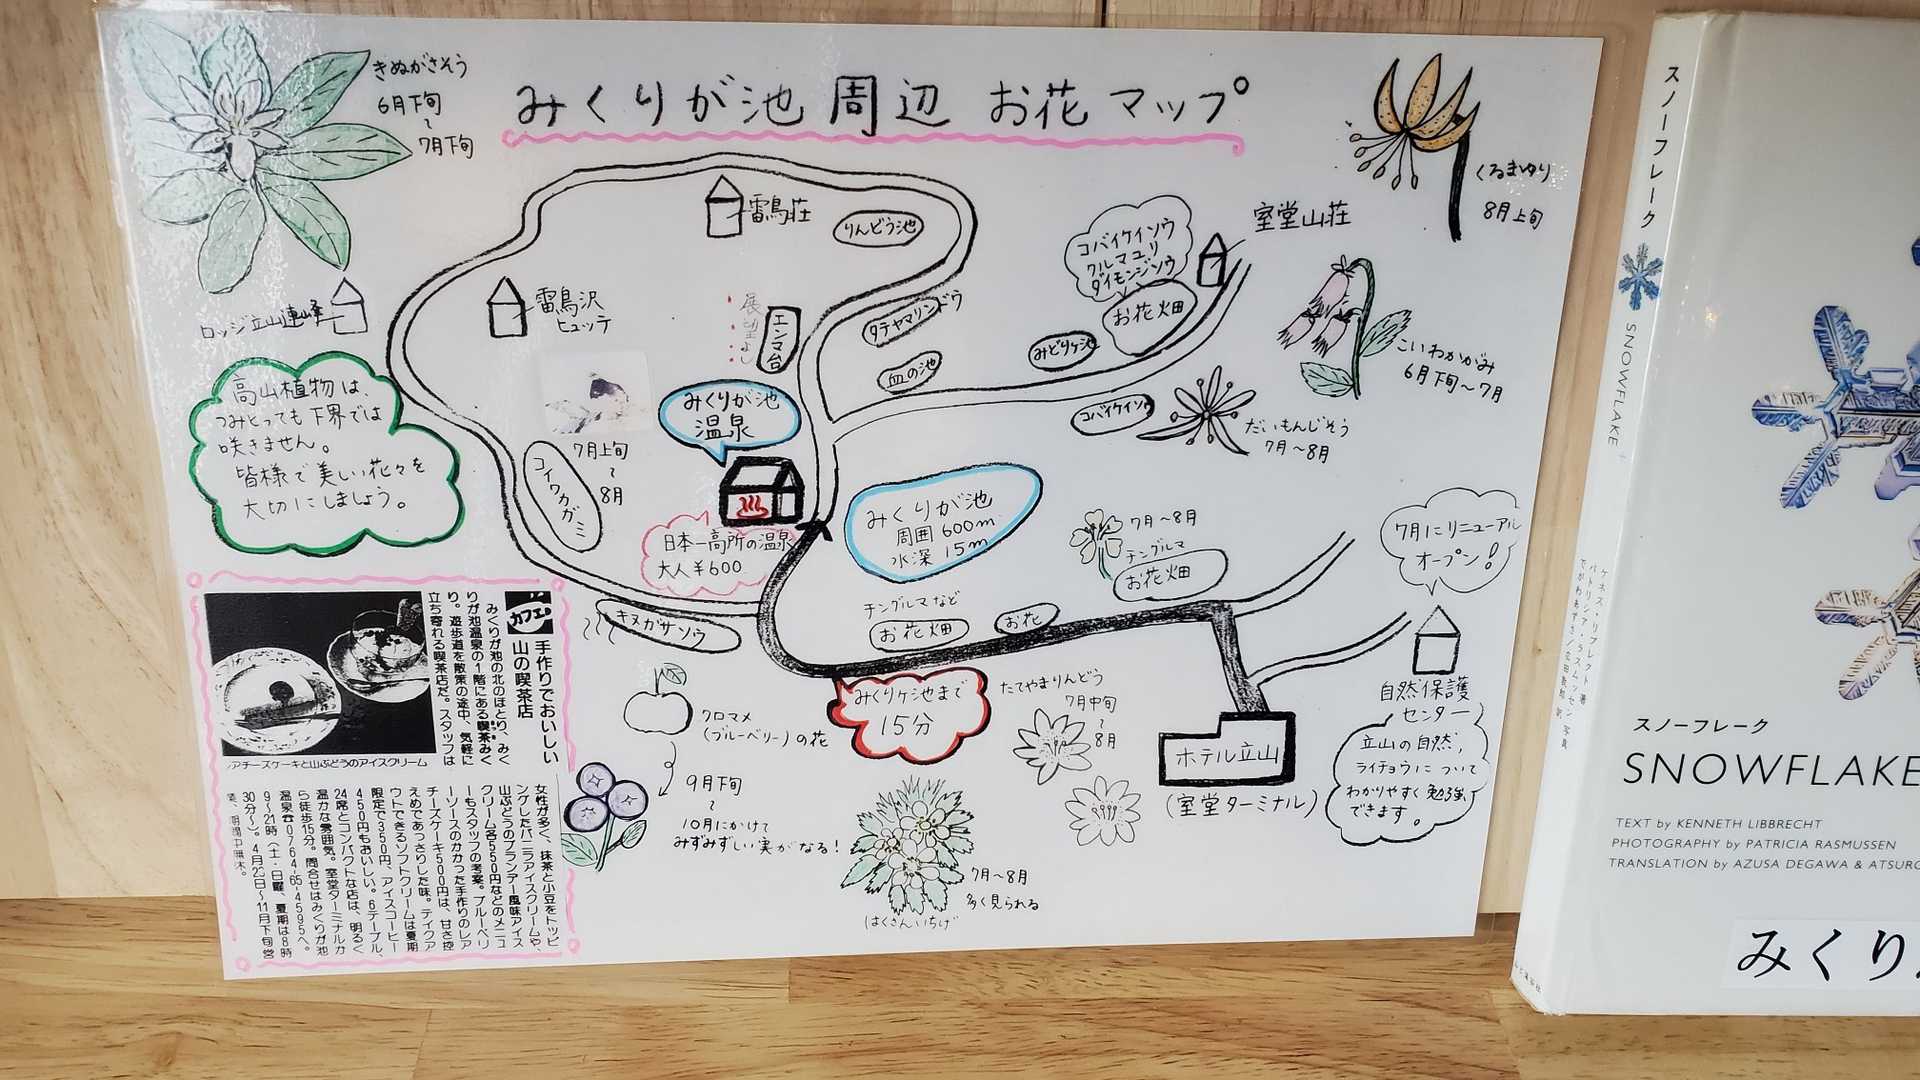 みくりが池 周辺 お花マップ
きぬがさそう
6月下旬
~
7月下旬
くるまゆり
8月上旬
雷鳥荘
りんどう池
室堂山荘
コバイケイソウ
クルマユリ
ダイモンジソウ
お花畑
ロッジ立山連峰
雷鳥沢
ヒュッテ
展望よし
エンマ台
タテヤマリンドウ
みどりヶ池
血の池
こいわかがみ
6月下旬~7月
高山植物は、
つみとっても下界では
咲きません。
皆様で美しい花々を
大切にしましょう。
みくりが池
温泉
コバイケイソウ
だいもんじそう
7月~8月
7月上旬
~
8月
コイワカガミ
みくりが池
周囲600m
水深15m
日本一高所の温泉
大人¥600
7月~8月
チングルマ
お花畑
7月にリニューアル
オープン!
キヌガサソウ
チングルマなど
お花畑
お花
みくりヶ池まで
15分
たてやまりんどう
7月中旬
~
8月
自然保護
センター
立山の自然,
ライチョウについて
わかりやすく勉強
できます。
ホテル立山
(室堂ターミナル)
クロマメ
(ブルーベリー)の花
9月下旬
~
10月にかけて
みずみずしい実がなる!
7月~8月
多く見られる
はくさんいちげ
カフェ
手作りでおいしい
山の喫茶店
みくりが池の北のほとり、みく
りが池温泉の1階にある喫茶みく
り。遊歩道を散策の途中、気軽に
立ち寄れる喫茶店だ。スタッフは
アチーズケーキと山ぶどうのアイスクリーム
女性が多く、抹茶と小豆をトッピ
ングしたバニラアイスクリームや、
山ぶどうのブランデー風味アイス
クリーム各550円などのメニュ
ーもスタッフの考案。ブルーベリ
ーソースのかかった手作りのレア
チーズケーキ500円は、甘さ控
えめであっさりした味。テイクア
ウトできるソフトクリームは夏期
限定で350円、アイスコーヒー
450円もおいしい。6テーブル、
24席とコンパクトな店は、明るく
温かな雰囲気。室堂ターミナルか
ら徒歩15分。問合せはみくりが池
温泉☎076-465-4595へ。
9~21時(土・日曜、夏期は8時
30分~)。4月23日~11月下旬営
業、期間中無休。
スノーフレーク
SNOWFLAKE
ケネス・リブレクト 著
パトリシア・ラスムッセン 写真
でがわあずさ/広田敦郎 訳
スノーフレーク
SNOWFLAKE
TEXT by KENNETH LIBBRECHT
PHOTOGRAPHY by PATRICIA RASMUSSEN
TRANSLATION by AZUSA DEGAWA & ATSURO
みくり